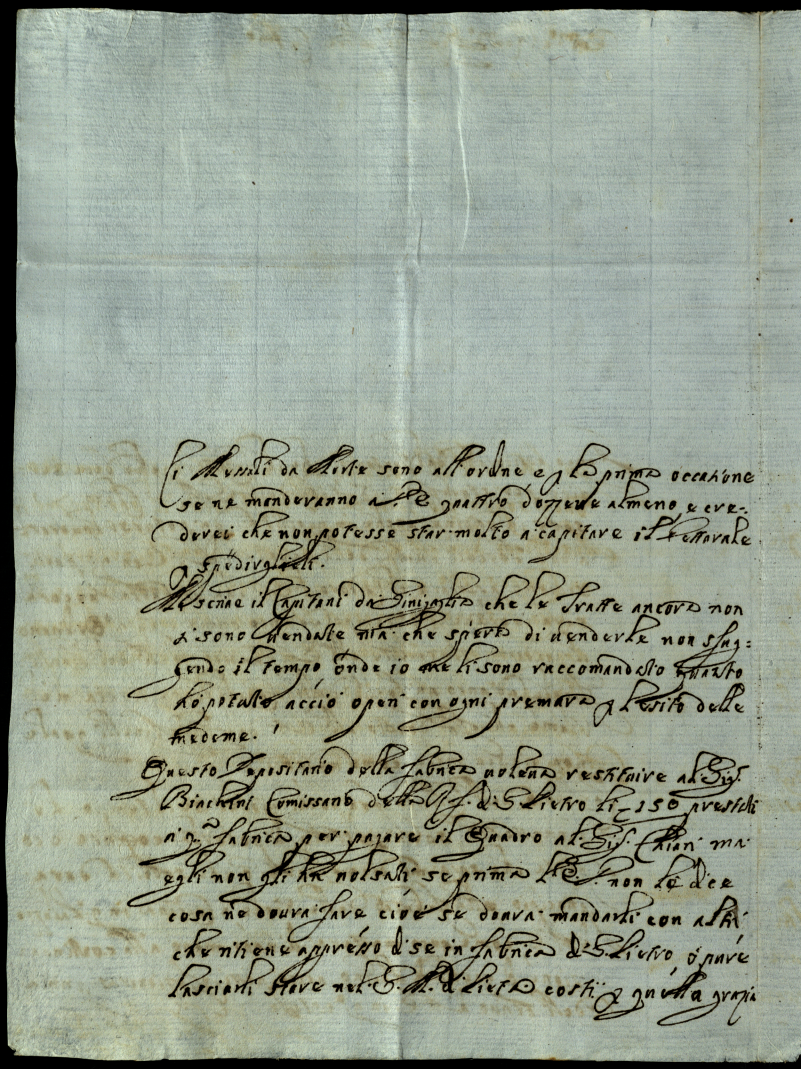 Li Messali da Morte sono all'ordine, e p la prima occasione
se ne manderanno a V.E. quattro dozzene almeno, e cre-
derei che non potesse star molto a capitare il Lettorale
p spedirglieli.
Mi scrive il Capitani da Sinigaglia che le Tratte ancora non
si sono vendute ma che spera di venderle non sfug=
gendo il tempo, onde io me li sono raccomandato quanto
hò potuto acciò operi con ogni premura p l'esito delle
medeme.
Questo Depositario della fabrica voleva restituire al Sig.
Bianchini Comissario della R. F. di S. Pietro li 150 prestati
a qta fabrica per pagare il Quadro al Sig. Chiari ma
egli non gli hà volsuti se prima V.E. non le dice
cosa ne dovrà fare cioè se dovrà mandarli con altri
che ritiene appresso di se in fabrica di S. Pietro, ò pure
lasciarli stare nel S. M. di Pietà costì p quella grazia